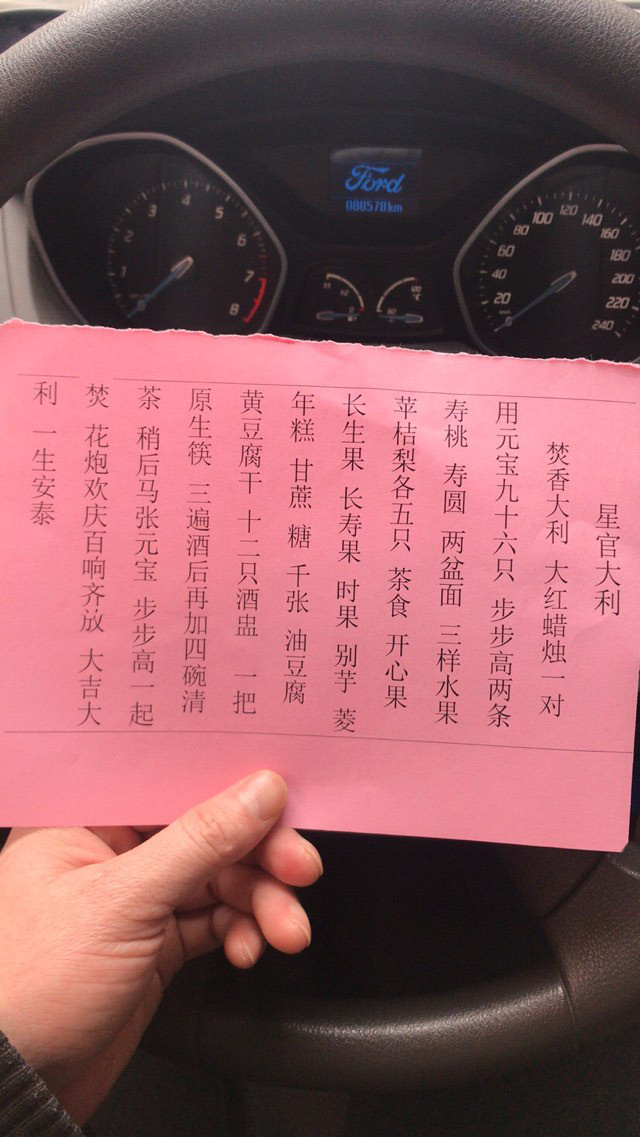 1
2
3
4
5
6
7
8
Ford
088578km
20
40
60
80
100
120
140
160
180
200
220
240
星官大利
焚香大利 大红蜡烛一对
用元宝九十六只 步步高两条
寿桃 寿圆 两盆面 三样水果
苹桔梨各五只 茶食 开心果
长生果 长寿果 时果 别芋 菱
年糕 甘蔗 糖 千张 油豆腐
黄豆腐干 十二只酒盅 一把
原生筷 三遍酒后再加四碗清
茶 稍后马张元宝 步步高一起
焚 花炮欢庆百响齐放 大吉大
利 一生安泰